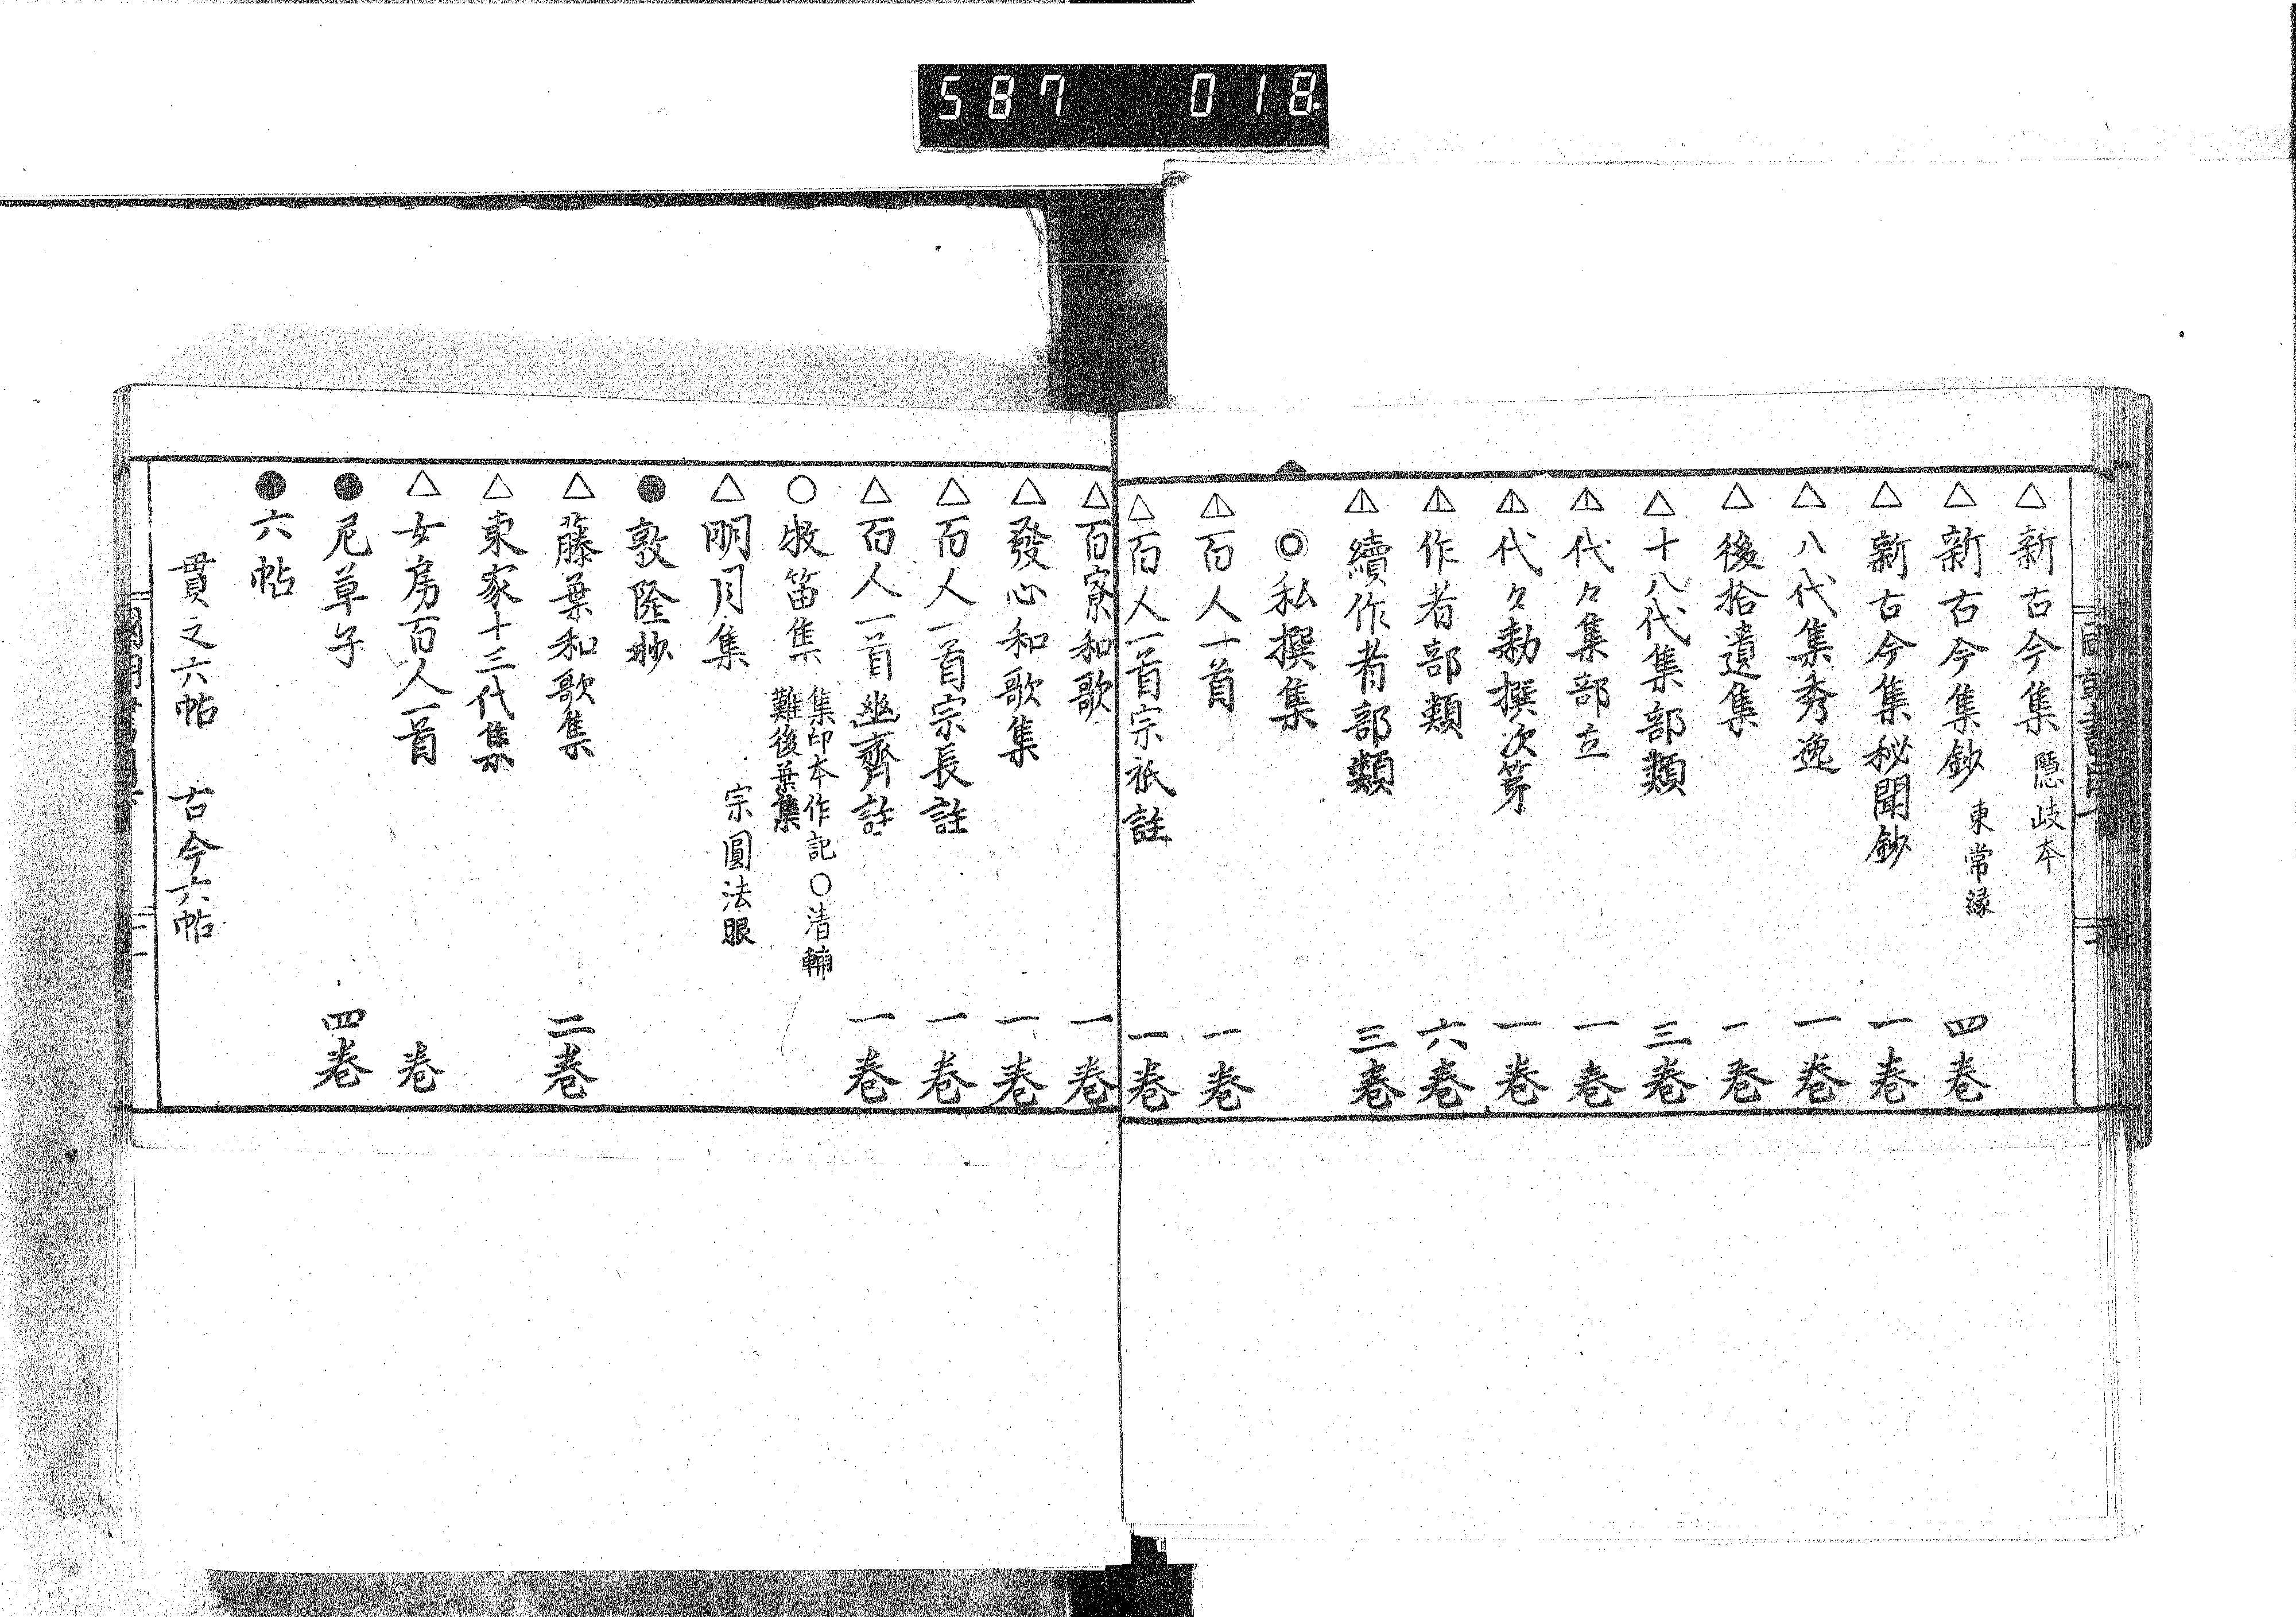 587 018
△新古今集 隠岐本
△新古今集鈔 東常縁 四巻
△新古今集秘聞鈔 一巻
△八代集秀逸 一巻
△後拾遺集 一巻
△十八代集部類 三巻
△代々集部立 一巻
△代々勅撰次第 一巻
△作者部類 六巻
△續作者部類 三巻
◎私撰集
△百人一首 一巻
△百人一首宗祇註 一巻
△百寮和歌 一巻
△發心和歌集 一巻
△百人一首宗長註 一巻
△百人一首幽齊註 一巻
○牧笛集 集印本作記○清輔
難後葉集
△明月集 宗圓法眼
●敦隆抄
△藤葉和歌集 二巻
△東家十三代集
△女房百人一首 巻
●尼草子 四巻
●六帖
貫之六帖 古今六帖